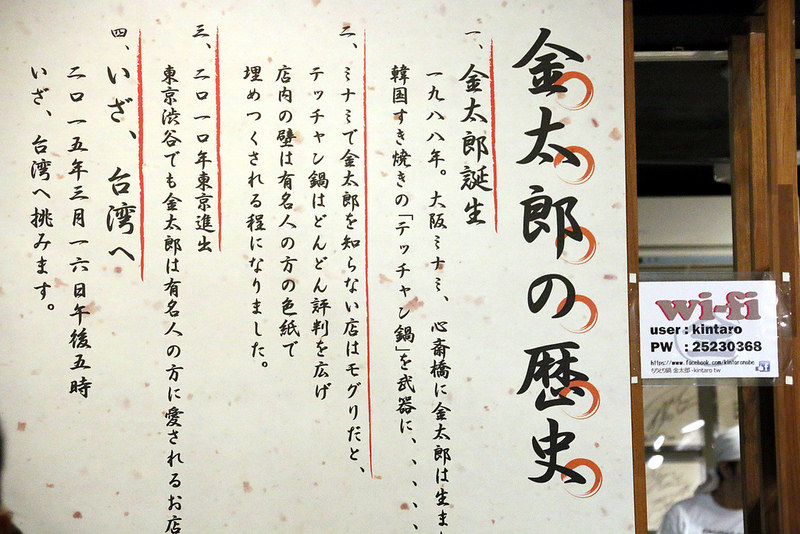 金太郎の歴史
一、金太郎誕生
一九八八年。大阪ミナミ、心斎橋に金太郎は生ま
韓国すき焼きの「テッチャン鍋」を武器に、、、、、
二、ミナミで金太郎を知らない店はモグリだと、
テッチャン鍋はどんどん評判を広げ
店内の壁は有名人の方の色紙で
埋めつくされる程になりました。
三、二〇一〇年東京進出
東京渋谷でも金太郎は有名人の方に愛されるお店
四、いざ、台湾へ
二〇一五年三月一六日午後五時
いざ、台湾へ挑みます。
wi-fi
user : kintaro
PW : 25230368
https://www.facebook.com/kintaronabe
ちりとり鍋 金太郎 -kintaro tw